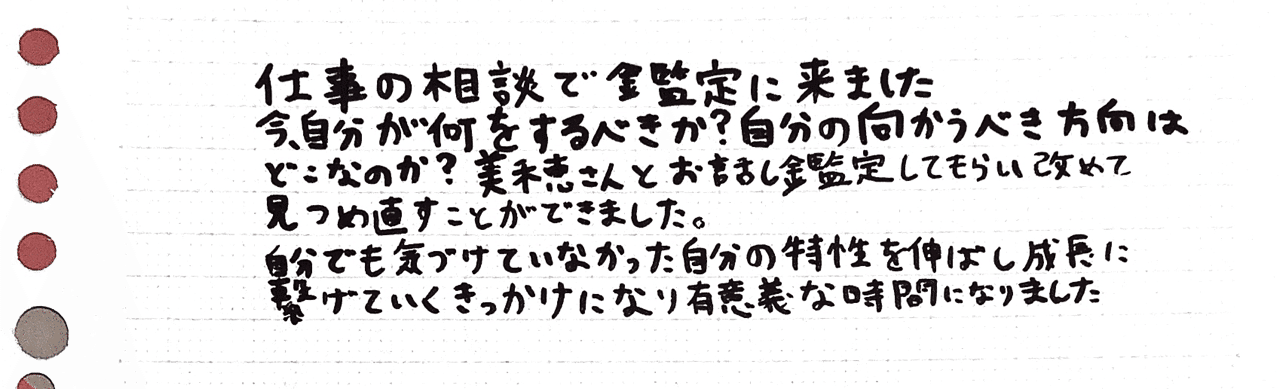 仕事の相談で鑑定に来ました
今、自分が何をするべきか?自分の向かうべき方向は
どこなのか?美禾恵さんとお話し鑑定してもらい改めて
見つめ直すことができました。
自分でも気づけていなかった自分の特性を伸ばし成長に
繋げていくきっかけになり有意義な時間になりました